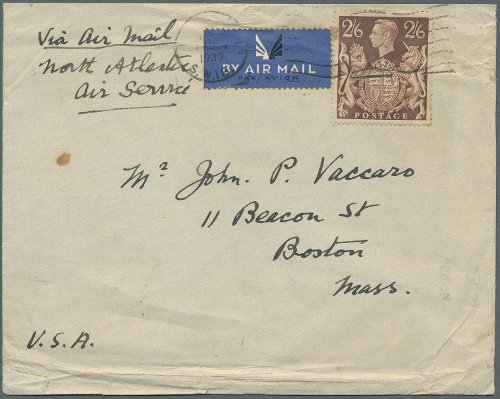 Via Air Mail
North Atlantic
Air Service
1939
S.W.1
BY AIR MAIL
PAR AVION
2/6 2/6
POSTAGE
Mr John. P. Vaccaro
11 Beacon St
Boston
Mass.
U.S.A.